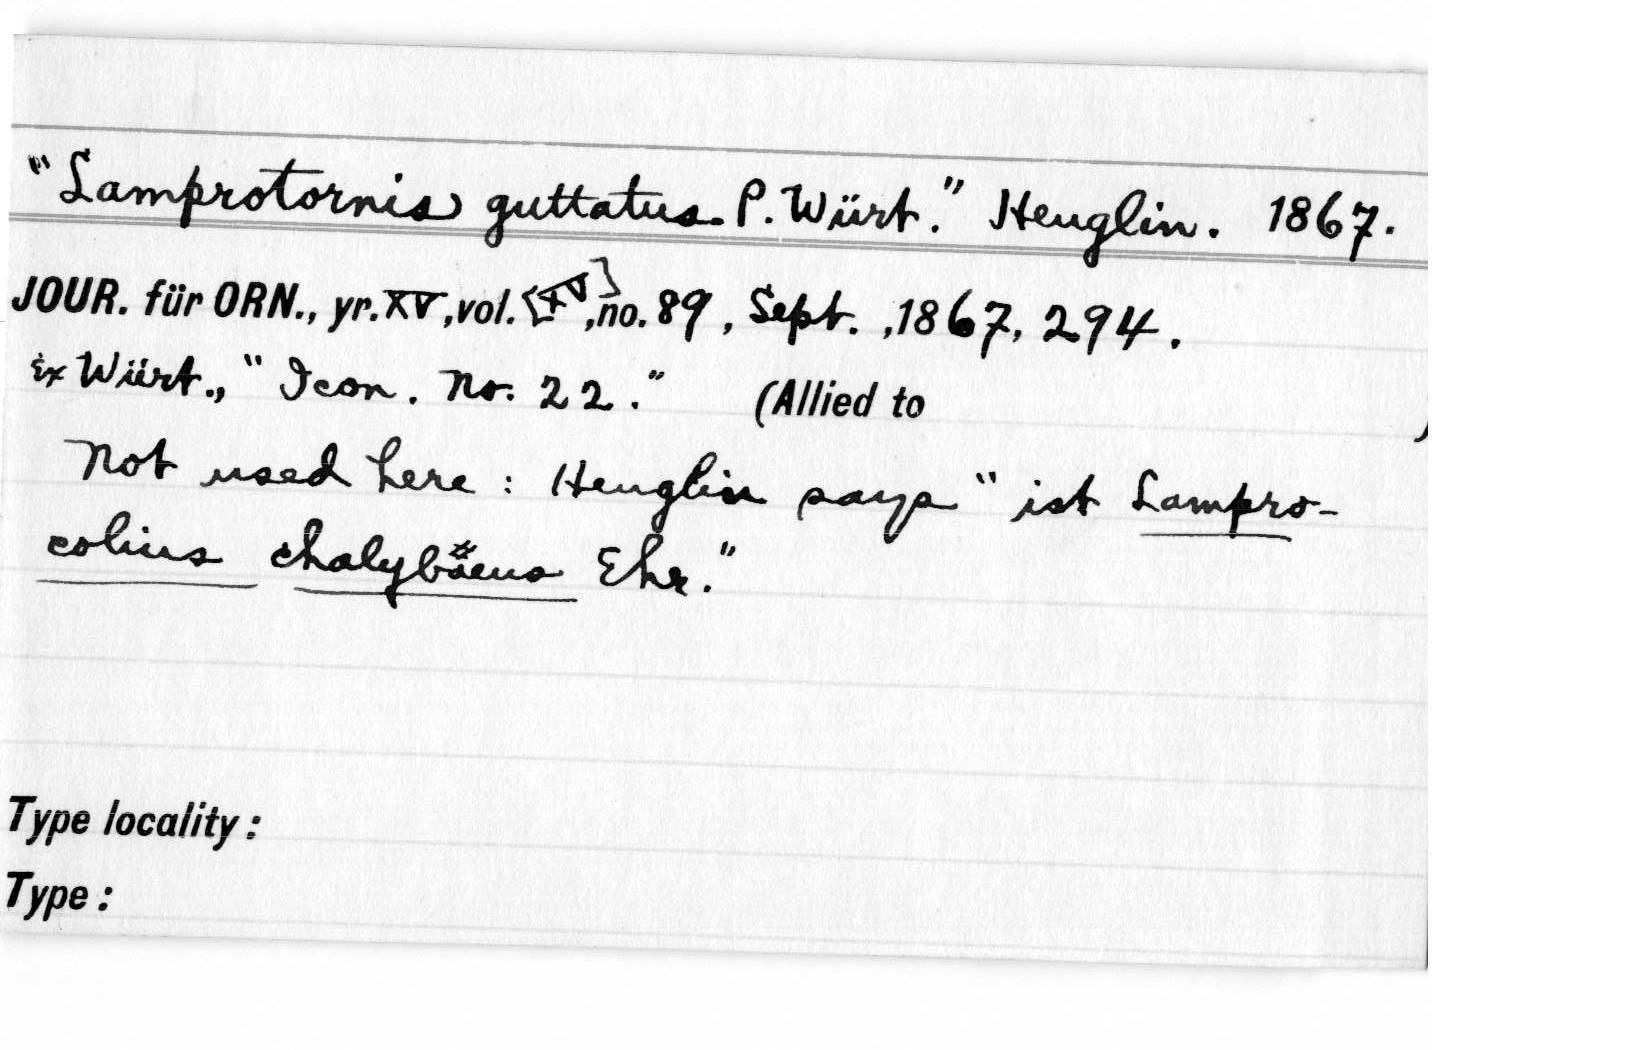 "Lamprotornis guttatus P. Würt." Heuglin. 1867.
JOUR. für ORN., yr. XV, vol. [XV], no. 89, Sept., 1867, 294.
Ex Würt., "Icon. No. 22." (Allied to )
Not used here: Heuglin says "ist Lampro-
colius chalybäeus Ehr."
Type locality:
Type: